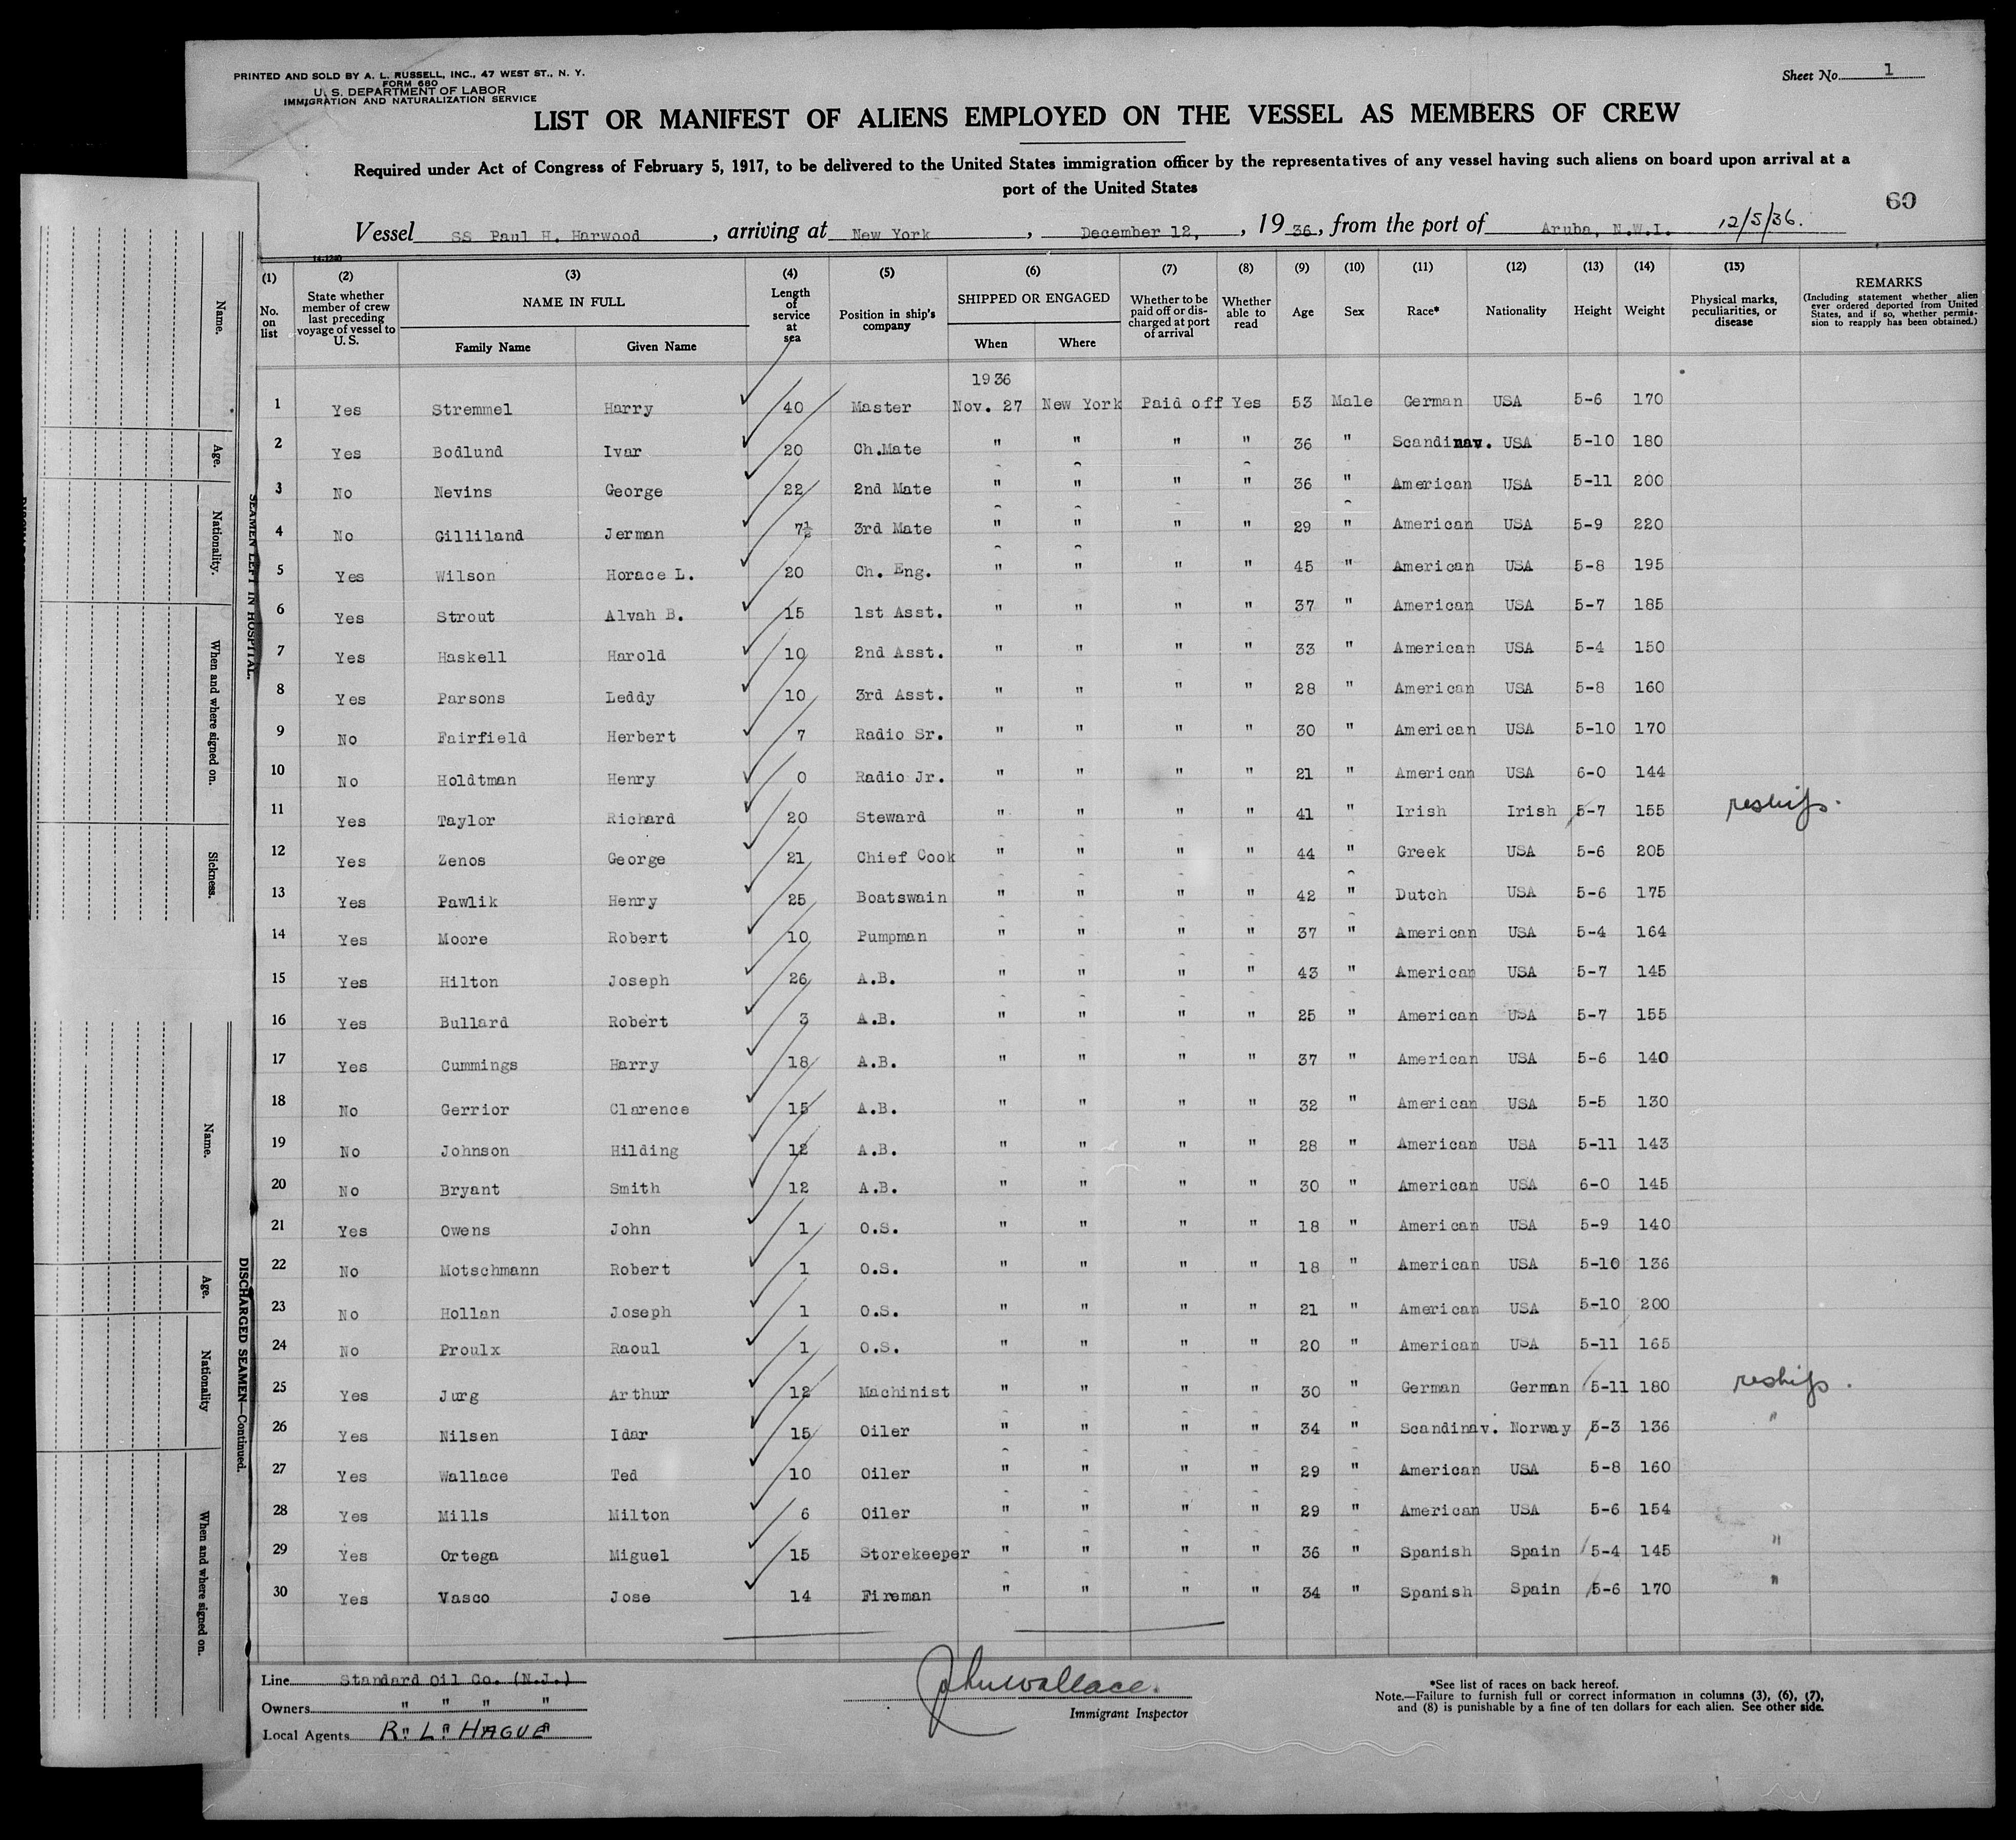 PRINTED AND SOLD BY A. L. RUSSELL, INC., 47 WEST ST., N. Y.
FORM 680
U. S. DEPARTMENT OF LABOR
IMMIGRATION AND NATURALIZATION SERVICE
Sheet No. 1
LIST OR MANIFEST OF ALIENS EMPLOYED ON THE VESSEL AS MEMBERS OF CREW
Required under Act of Congress of February 5, 1917, to be delivered to the United States immigration officer by the representatives of any vessel having such aliens on board upon arrival at a
port of the United States
60
Vessel SS Paul H. Harwood, arriving at New York, December 12, 1936, from the port of Aruba, N.W.I. 12/5/36.
14-1240
(1) (2) (3) (4) (5) (6) (7) (8) (9) (10) (11) (12) (13) (14) (15)
No. on list
State whether member of crew last preceding voyage of vessel to U. S.
NAME IN FULL
Family Name Given Name
Length of service at sea
Position in ship's company
SHIPPED OR ENGAGED
When Where
Whether to be paid off or discharged at port of arrival
Whether able to read
Age
Sex
Race*
Nationality
Height
Weight
Physical marks, peculiarities, or disease
REMARKS
(Including statement whether alien ever ordered deported from United States, and if so, whether permission to reapply has been obtained.)
1936
1 Yes Stremmel Harry 40 Master Nov. 27 New York Paid off Yes 53 Male German USA 5-6 170
2 Yes Bodlund Ivar 20 Ch.Mate " " " " 36 " Scandinav. USA 5-10 180
3 No Nevins George 22 2nd Mate " " " " 36 " American USA 5-11 200
4 No Gilliland Jerman 7½ 3rd Mate " " " " 29 " American USA 5-9 220
5 Yes Wilson Horace L. 20 Ch. Eng. " " " " 45 " American USA 5-8 195
6 Yes Strout Alvah B. 15 1st Asst. " " " " 37 " American USA 5-7 185
7 Yes Haskell Harold 10 2nd Asst. " " " " 33 " American USA 5-4 150
8 Yes Parsons Leddy 10 3rd Asst. " " " " 28 " American USA 5-8 160
9 No Fairfield Herbert 7 Radio Sr. " " " " 30 " American USA 5-10 170
10 No Holdtman Henry 0 Radio Jr. " " " " 21 " American USA 6-0 144
11 Yes Taylor Richard 20 Steward " " " " 41 " Irish Irish 5-7 155 reships.
12 Yes Zenos George 21 Chief Cook " " " " 44 " Greek USA 5-6 205
13 Yes Pawlik Henry 25 Boatswain " " " " 42 " Dutch USA 5-6 175
14 Yes Moore Robert 10 Pumpman " " " " 37 " American USA 5-4 164
15 Yes Hilton Joseph 26 A.B. " " " " 43 " American USA 5-7 145
16 Yes Bullard Robert 3 A.B. " " " " 25 " American USA 5-7 155
17 Yes Cummings Harry 18 A.B. " " " " 37 " American USA 5-6 140
18 No Gerrior Clarence 15 A.B. " " " " 32 " American USA 5-5 130
19 No Johnson Hilding 12 A.B. " " " " 28 " American USA 5-11 143
20 No Bryant Smith 12 A.B. " " " " 30 " American USA 6-0 145
21 Yes Owens John 1 O.S. " " " " 18 " American USA 5-9 140
22 No Motschmann Robert 1 O.S. " " " " 18 " American USA 5-10 136
23 No Hollan Joseph 1 O.S. " " " " 21 " American USA 5-10 200
24 No Proulx Raoul 1 O.S. " " " " 20 " American USA 5-11 165
25 Yes Jurg Arthur 12 Machinist " " " " 30 " German German 5-11 180 reships.
26 Yes Nilsen Idar 15 Oiler " " " " 34 " Scandinav. Norway 5-3 136 "
27 Yes Wallace Ted 10 Oiler " " " " 29 " American USA 5-8 160
28 Yes Mills Milton 6 Oiler " " " " 29 " American USA 5-6 154
29 Yes Ortega Miguel 15 Storekeeper " " " " 36 " Spanish Spain 5-4 145 "
30 Yes Vasco Jose 14 Fireman " " " " 34 " Spanish Spain 5-6 170 "
Line Standard Oil Co. (N.J.)
Owners " " " "
Local Agents R. L. HAGUE
John Wallace.
Immigrant Inspector
*See list of races on back hereof.
Note.—Failure to furnish full or correct information in columns (3), (6), (7),
and (8) is punishable by a fine of ten dollars for each alien. See other side.
SEAMEN LEFT IN HOSPITAL.
Name.
Age.
Nationality.
When and where signed on.
Sickness.
DISCHARGED SEAMEN—Continued.
Name.
Age.
Nationality
When and where signed on.